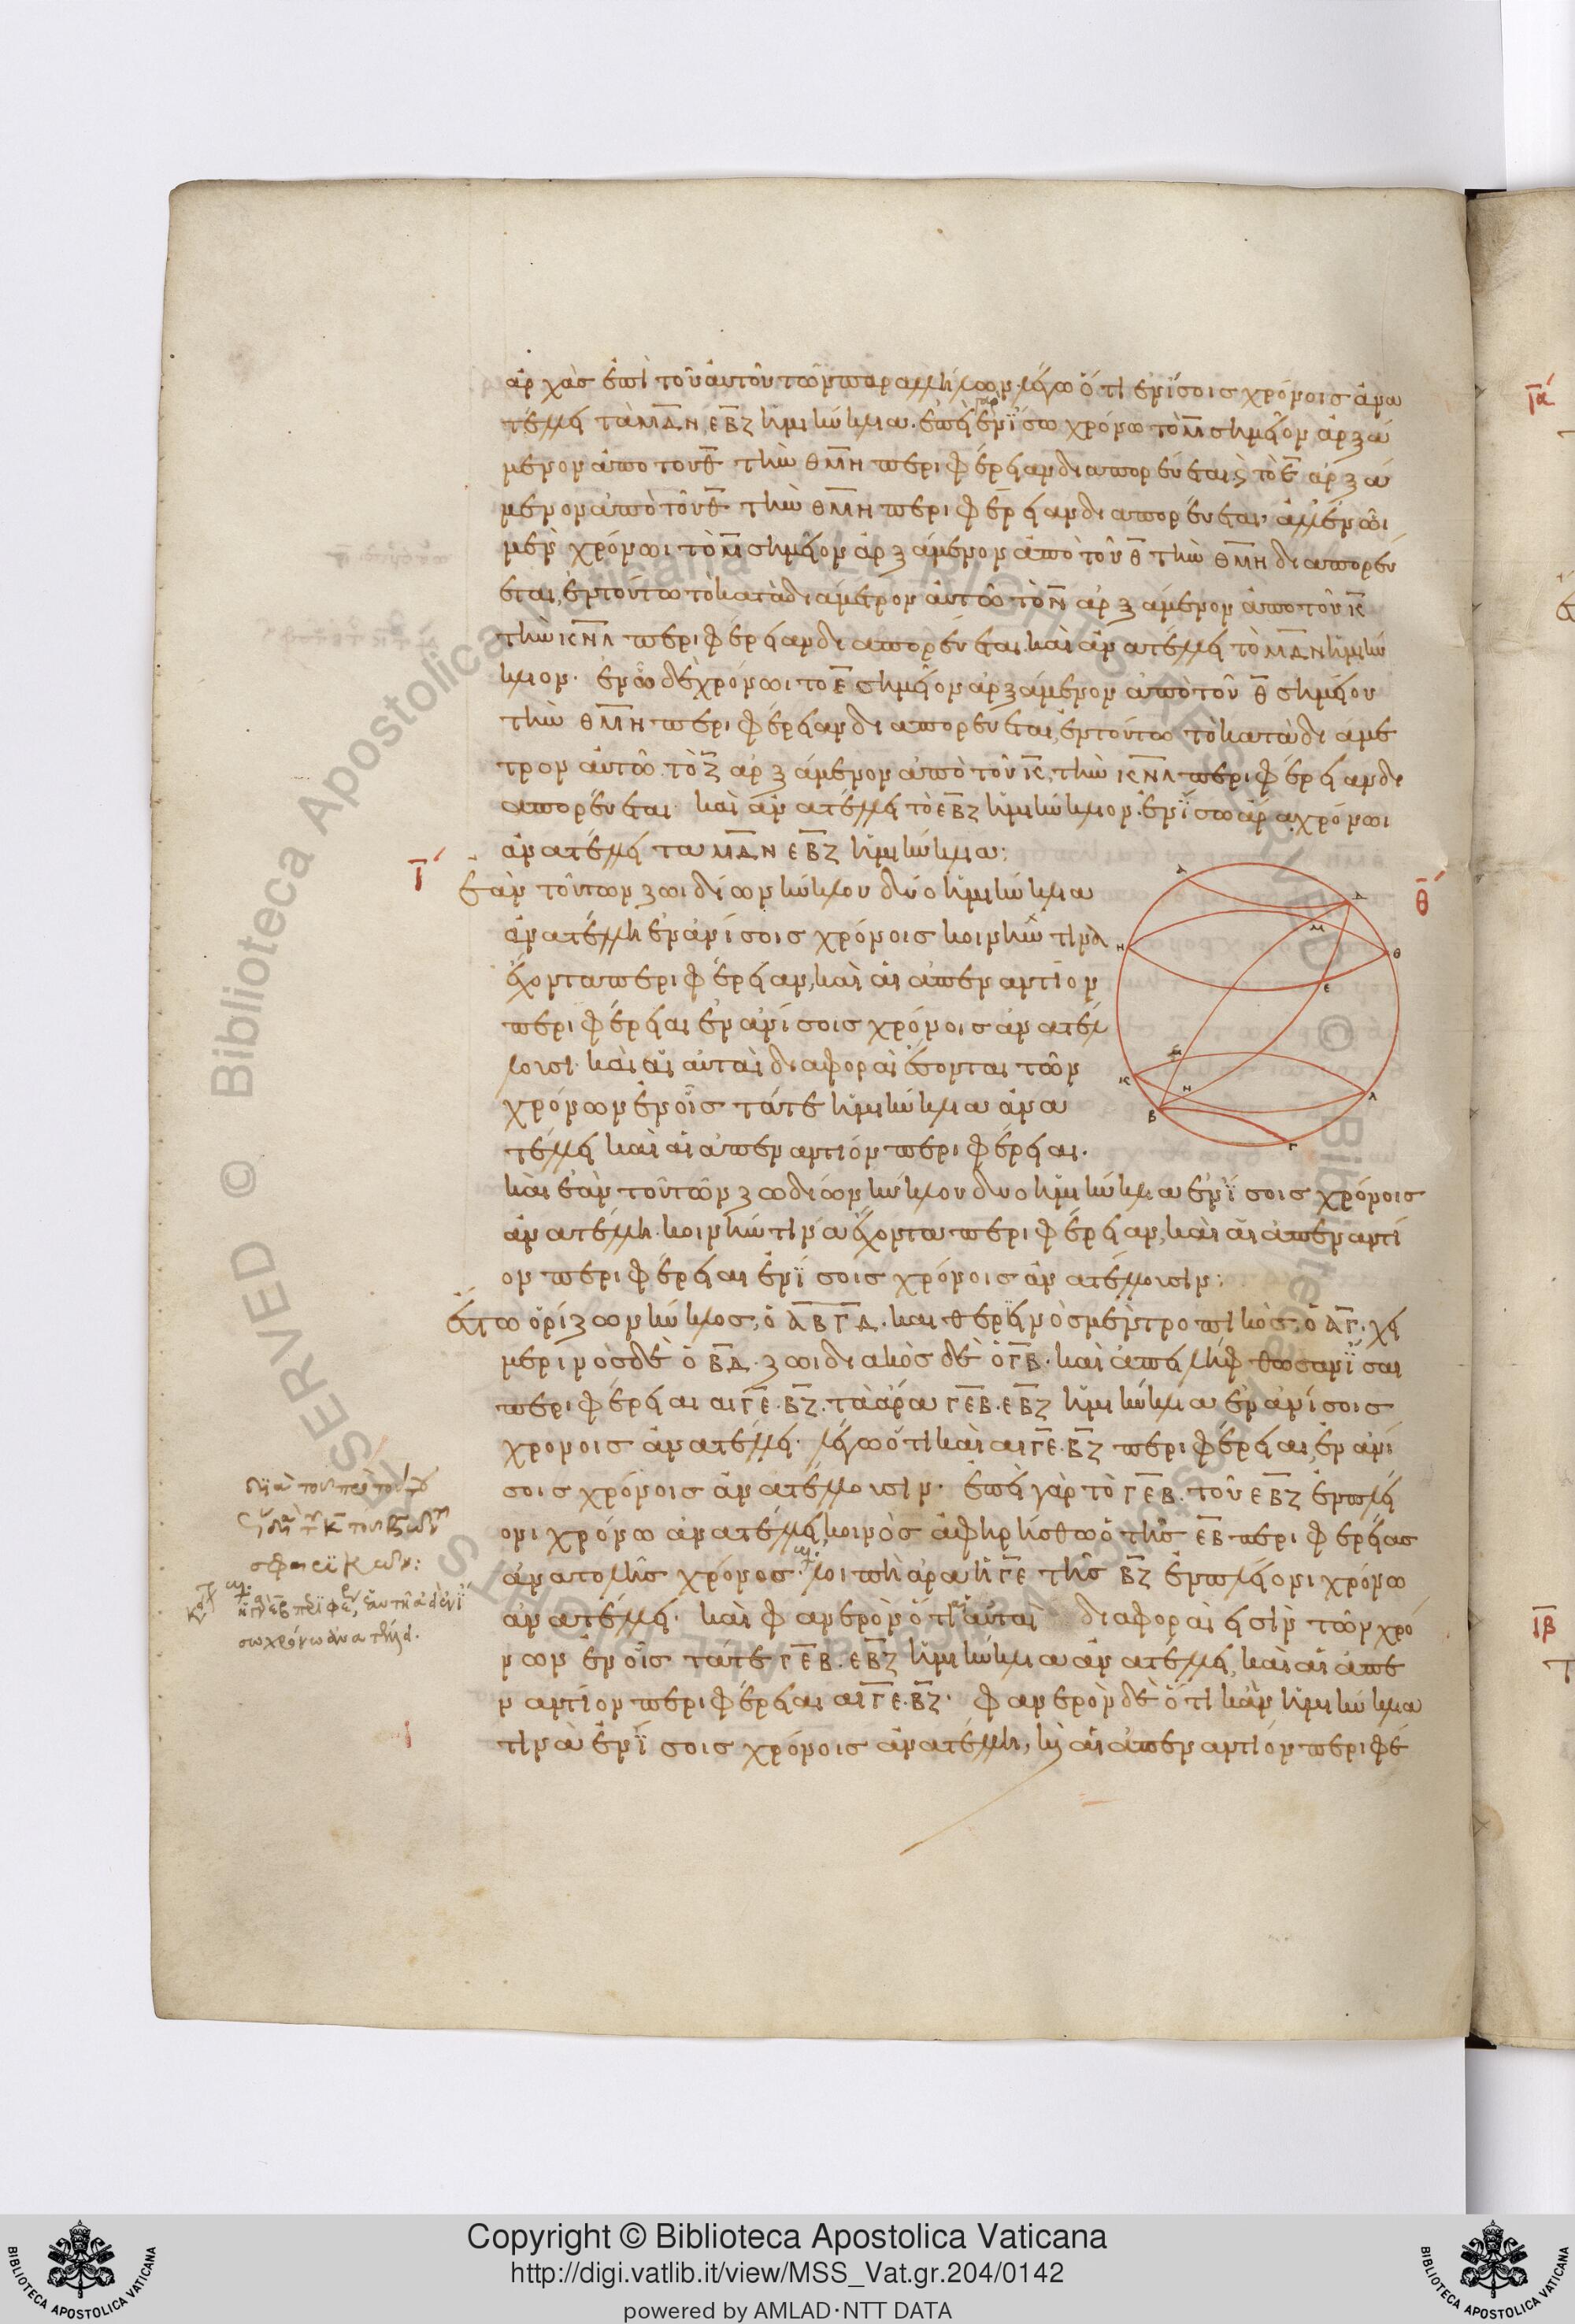 ἀρχὰς ἐπὶ τοῦ αὐτοῦ τῶν παραλλήλων. λέγω ὅτι ἐν ἴσοις χρόνοις ἀνα
τέλλει τὰ ΜΔΝ, ΕΒΖ ἡμικύκλια. ἐπεὶ γὰρ ἐν ἴσω χρόνω τὸ Μ σημεῖον ἀρξά
μενον ἀπο τοῦ Θ τὴν ΘΜΗ περιφέρειαν διαπορεύεται, καὶ τὸ Ε ἀρξά
μενον ἀπὸ τοῦ Θ τὴν ΘΜΗ περιφέρειαν διαπορεύεται, ἀλλ' ἐν ὧι
μὲν χρόνωι τὸ Μ σημεῖον ἀρξάμενον ἀπὸ τοῦ Θ τὴν ΘΜΗ διαπορεύ
εται, ἐν τούτω τὸ κατὰ διάμετρον αὐτῶ τὸ Ν ἀρξάμενον ἀπο τοῦ Κ
τὴν ΚΝΛ περιφέρειαν διαπορεύεται. καὶ ἀνατέλλει τὸ ΜΔΝ ἡμικύ
κλιον. ἐν ὧ δὲ χρόνωι το Ε σημεῖον ἀρξάμενον ἀπὸ τοῦ Θ σημείου
τὴν ΘΜΗ περιφέρειαν διαπορεύεται, ἐν τούτω τὸ κατὰ διάμε
τρον αὐτῶ τὸ Ζ ἀρξάμενον ἀπὸ τοῦ Κ, τὴν ΚΝΛ περιφέρειαν δι
απορεύεται. καὶ ἀνατέλλει τὸ ΕΒΖ ἡμικύκλιον. ἐν ἴσω ἄρα χρόνωι
ἀνατέλλει τα ΜΔΝ ΕΒΖ ἡμικύκλια:
ι
ἐὰν τοῦ τῶν ζωιδίων κύκλου δύο ἡμικύκλια
θ
ἀνατέλλη ἐν ἀνίσοις χρόνοις κοινὴν τινὰ
ἔχοντα περιφέρειαν, καὶ αἱ ἀπεναντίον
περιφέρειαι ἐν ἀνίσοις χρόνοις ἀνατέλ
λουσι. καὶ αἱ αὐταὶ διαφοραὶ ἔσονται τῶν
χρόνων ἐν οἷς τά τε ἡμικύκλια ἀνα
τέλλει καὶ αἱ ἀπεναντίον περιφέρειαι.
Δ
Μ
Η
Θ
Ε
Κ
Ν
Λ
Β
Γ
καὶ ἐὰν τοῦ τῶν ζωδίων κύκλου δυο ἡμικύκλια ἐν ἴσοις χρόνοις
ἀνατέλλη. κοινήν τινα ἔχοντα περιφέρειαν, καὶ αἱ ἀπεναντί
ον περιφέρειαι ἐν ἴσοις χρόνοις ἀνατέλλουσιν:
ἔστω ὁρίζων κύκλος, ὁ ΑΒΓΔ. και θερεινὸς μὲν τροπικὸς, ὁ ΑΓ. χει
μερινὸς δὲ ὁ ΒΔ. ζωιδιακὸς δὲ ὁ ΓΒ. καὶ ἀπειλήφθωσαν ἴσαι
περιφέρειαι αι ΓΕ. ΒΖ. τὰ ἄρα ΓΕΒ. ΕΒΖ ἡμικύκλια ἐν ἀνίσοις
χρονοις ἀνατέλλει. λέγω ὅτι καὶ αι ΓΕ. ΒΖ περιφέρειαι, ἐν ἀνί
σοις χρόνοις ἀνατέλλουσιν. ἐπεὶ γὰρ τὸ ΓΕΒ. τοῦ ΕΒΖ ἐν πλεί
ονι χρόνω ἀνατέλλει, κοινὸς ἀφηρήσθω ὁ τῆς ΕΒ περιφερείας
ἀνατολῆς χρόνος. λοιπὴ ἄρα ἡ ΓΕ τῆς ΒΖ ἐν πλείονι χρόνω
ἀνατέλλει. καὶ φανερὸν ὅτι αἱ αὐταὶ διαφοραὶ εἰσὶν τῶν χρό
νων ἐν οἷς τά τε ΓΕΒ. ΕΒΖ ἡμικύκλια ἀνατέλλει, καὶ αἱ ἀπε
ναντίον περιφέρειαι αι ΓΕ. ΒΖ. φανερὸν δὲ ὅτι κἂν ἡμικύκλια
τινὰ ἐν ἴσοις χρόνοις ἀνατέλλη, καὶ αἱ ἀπεναντίον περιφέ
ια
ιβ
Copyright © Biblioteca Apostolica Vaticana
http://digi.vatlib.it/view/MSS_Vat.gr.204/0142
powered by AMLAD·NTT DATA
BIBLIOTECA APOSTOLICA VATICANA
BIBLIOTECA APOSTOLICA VATICANA